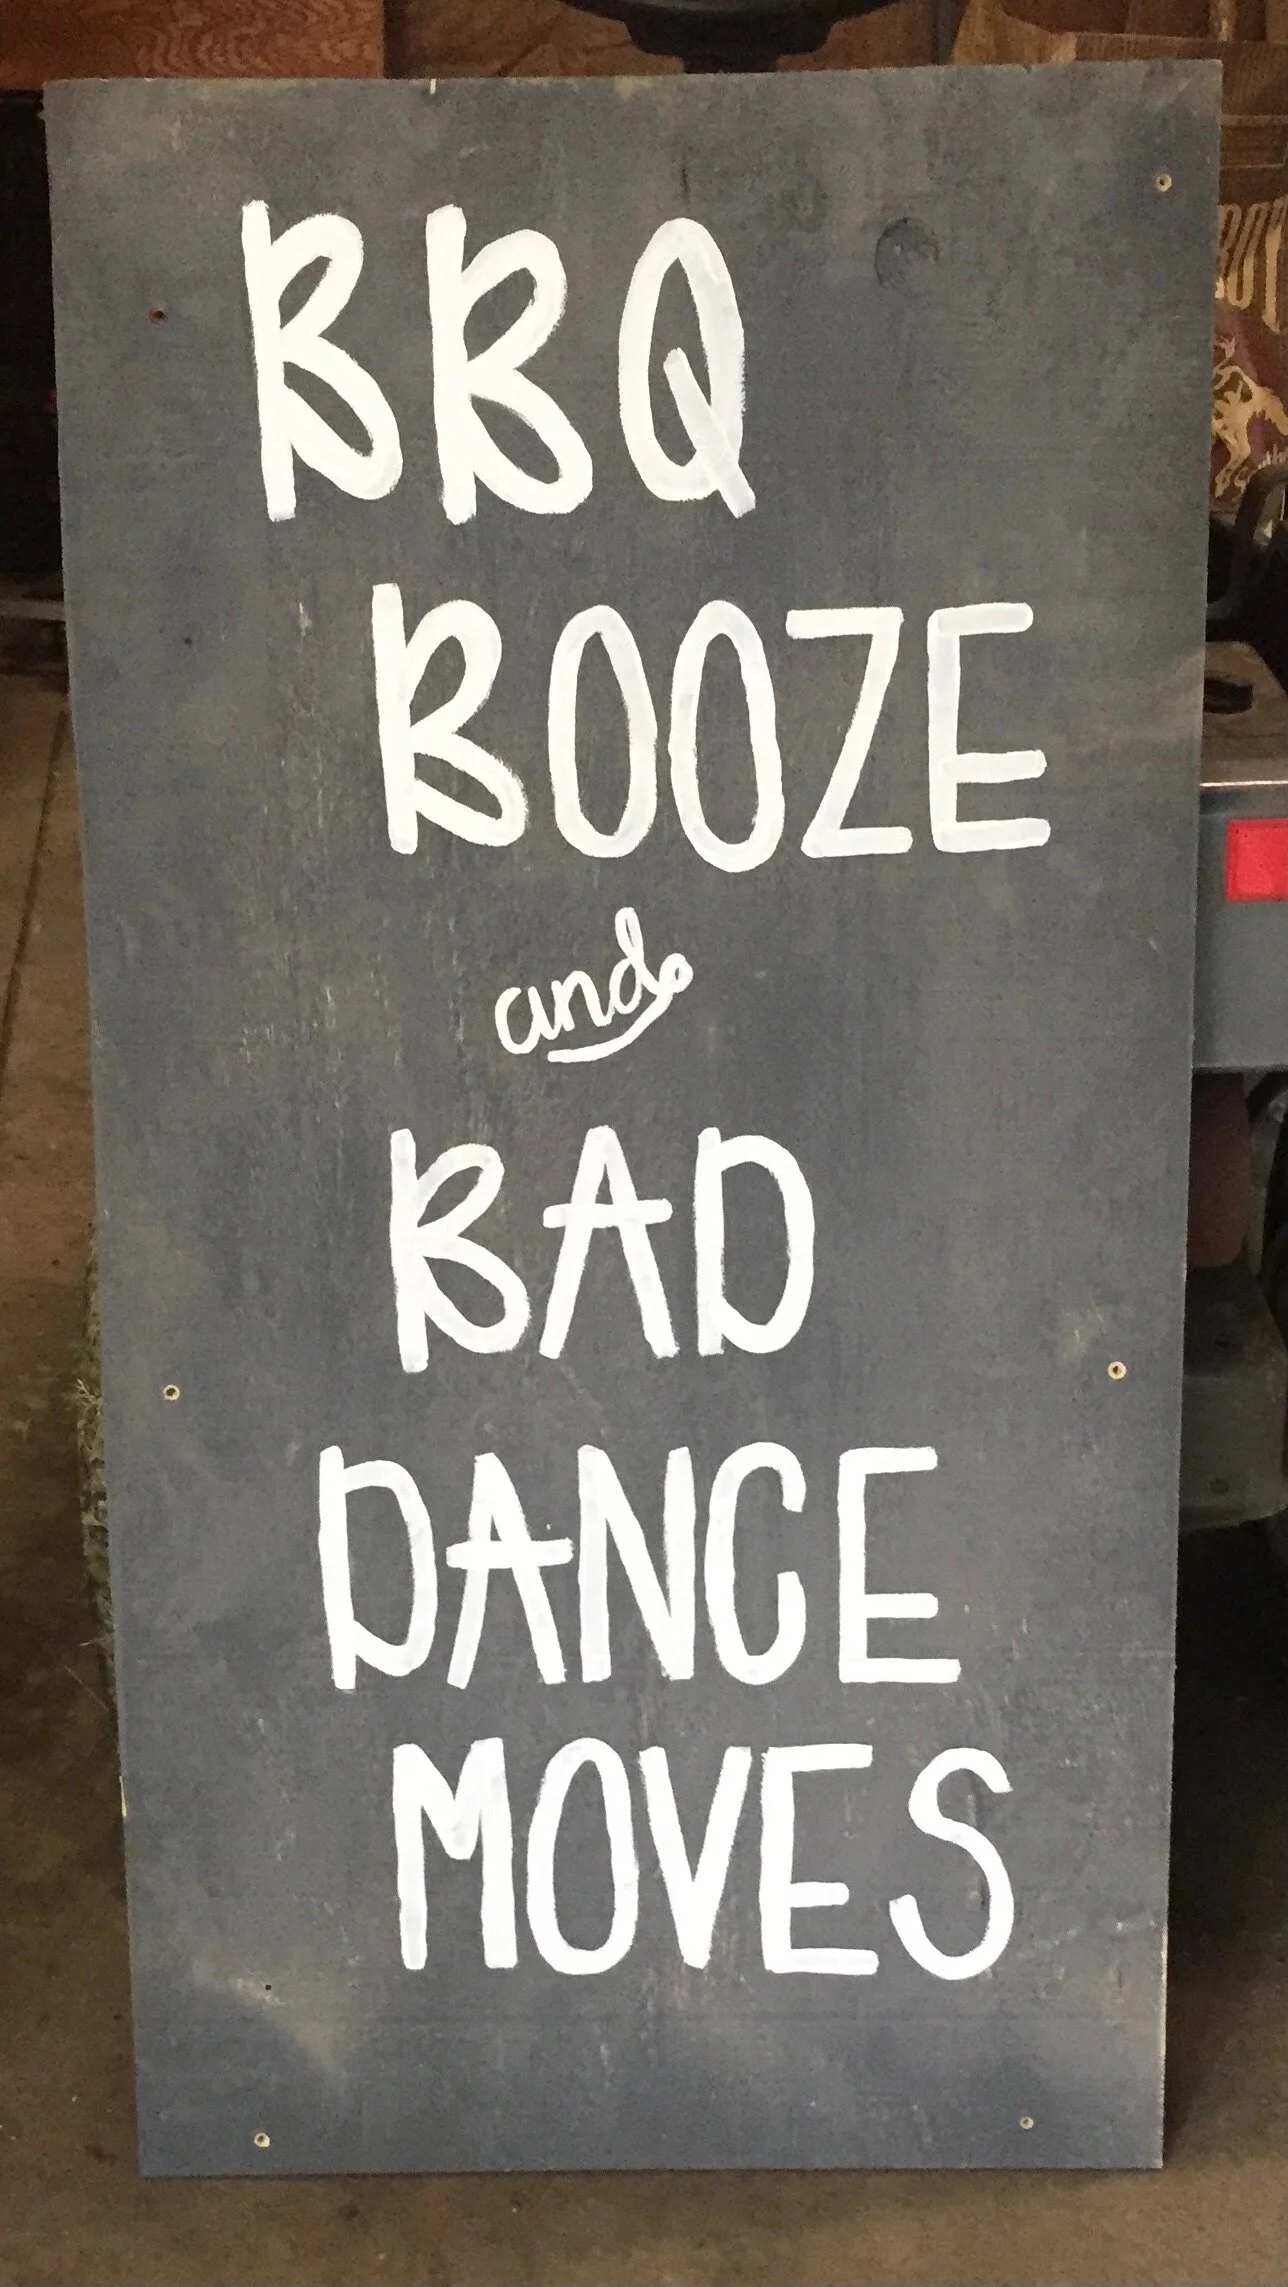 BBQ
BOOZE
and
BAD
DANCE
MOVES